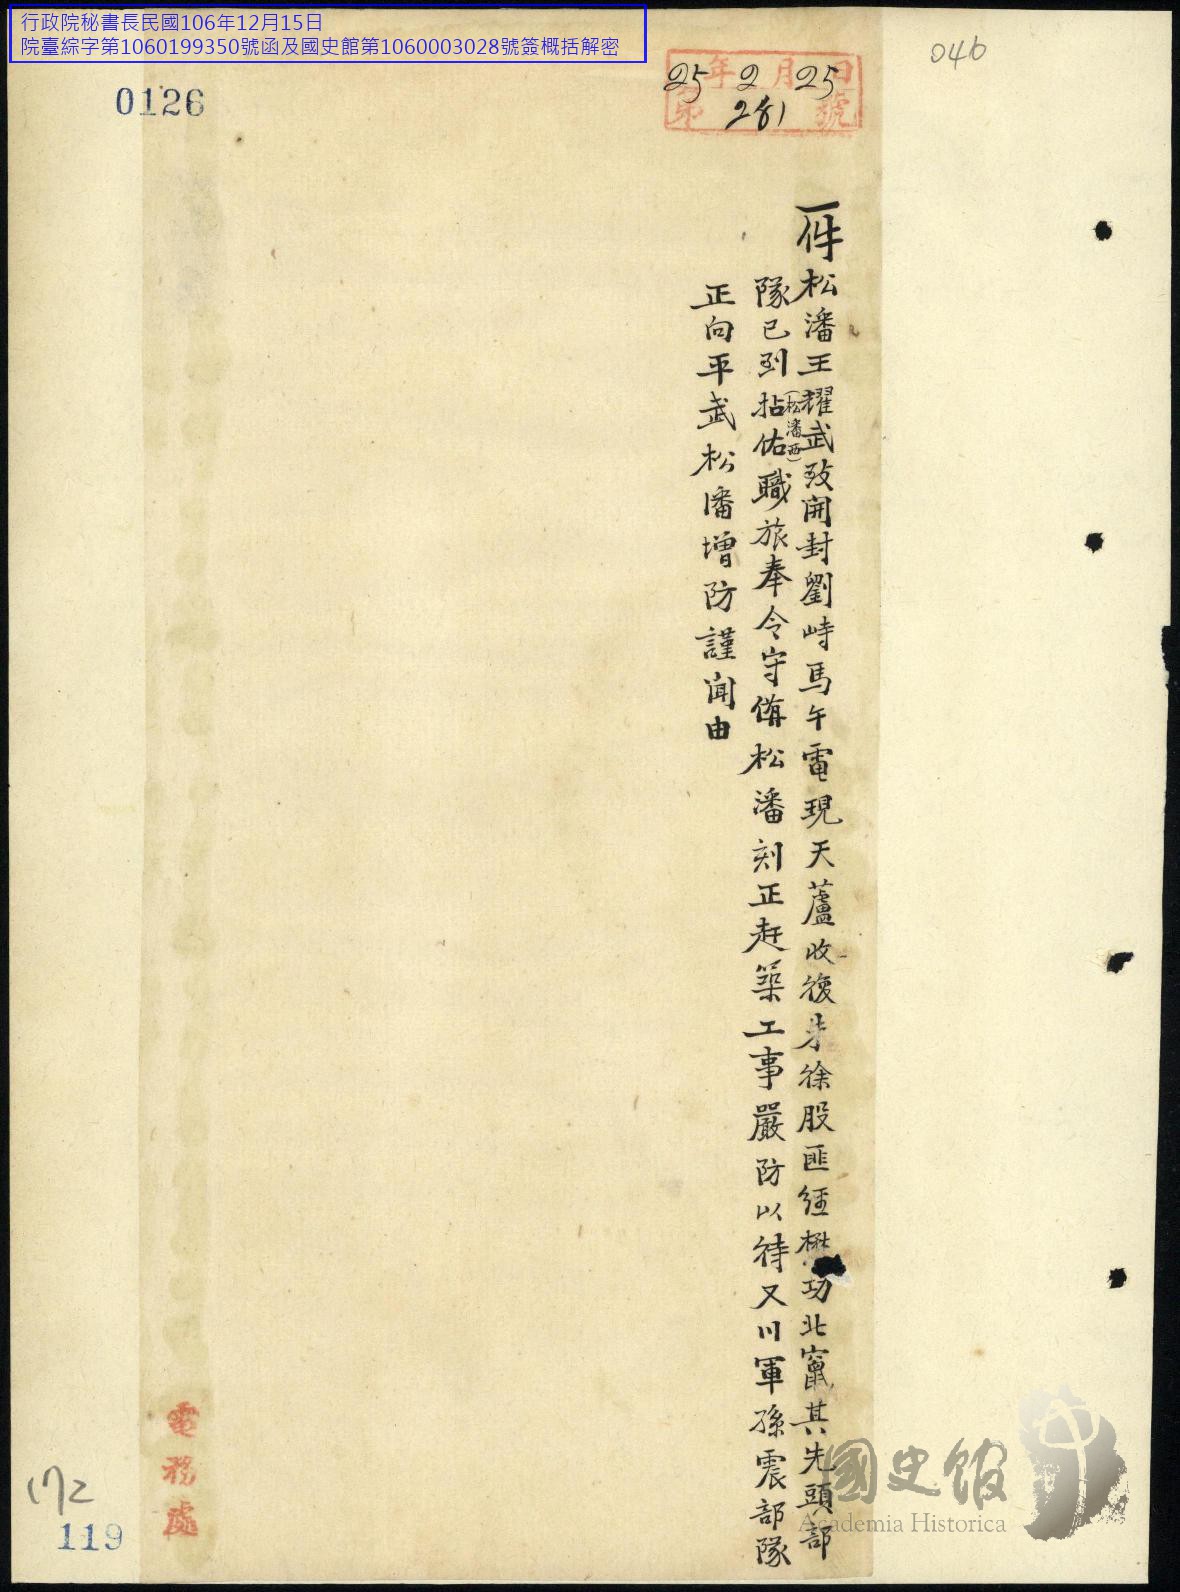 行政院秘書長民國106年12月15日
院臺綜字第1060199350號函及國史館第1060003028號簽概括解密
046
0126
25年2月25日
第281號
一件松潘王耀武致開封劉峙馬午電現天蘆收復朱徐股匪經懋功北竄其先頭部
隊已到拈佑(松潘西)職旅奉令守備松潘刻正赶築工事嚴防以待又川軍孫震部隊
正向平武松潘增防謹聞由
電務處
172
119
國史館
Academia Historica